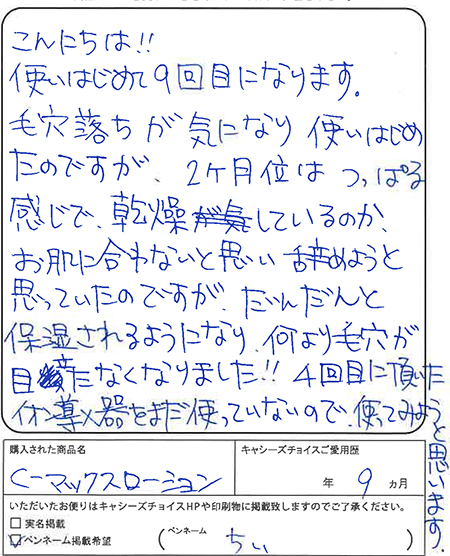 こんにちは!!
使いはじめて9回目になります。
毛穴落ちが気になり使いはじめ
たのですが、2ヶ月位はつっぱる
感じで、乾燥しているのか、
お肌に合わないと思い辞めようと
思っていたのですが、だんだんと
保湿されるようになり、何より毛穴が
目立たなくなりました!! 4回目に頂いた
イオン導入器をまだ使っていないので、使ってみようと思います。
購入された商品名
キャシーズチョイスご愛用歴
C-マックスローション
年 9 ヵ月
いただいたお便りはキャシーズチョイスHPや印刷物に掲載致しますのでご了承ください。
□ 実名掲載
☑ ペンネーム掲載希望 (ペンネーム ちい